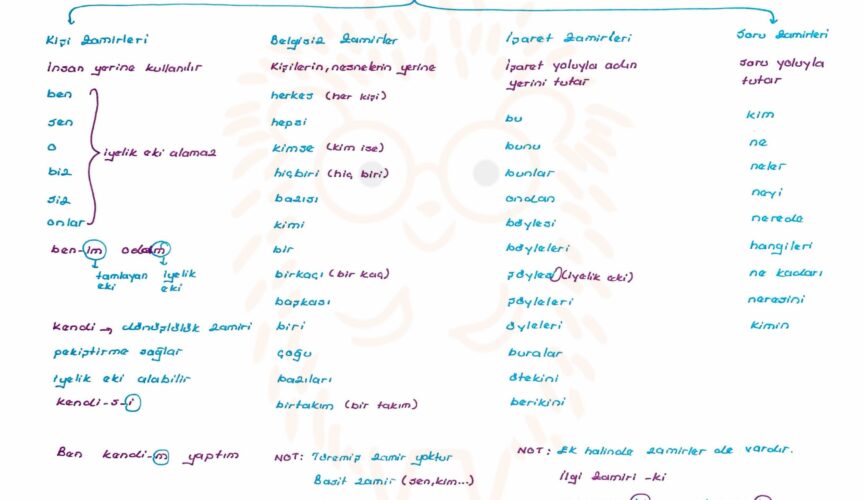 Kişi Zamirleri
insan yerine kullanılır
ben
sen
o
biz
siz
onlar
iyelik eki alamaz
ben-im odam
tamlayan eki
iyelik eki
kendi → dönüşlülük zamiri
pekiştirme sağlar
iyelik eki alabilir
kendi-s-i
Ben kendi-m yaptım
Belgisiz Zamirler
Kişilerin, nesnelerin yerine
herkes (her kişi)
hepsi
kimse (kim ise)
hiçbiri (hiç biri)
bazısı
kimi
bir
birkaçı (bir kaç)
başkası
biri
çoğu
bazıları
birtakım (bir takım)
NOT: Türemiş zamir yoktur
Basit zamir (sen, kim...)
İşaret Zamirleri
İşaret yoluyla adın
yerini tutar
bu
bunu
bunlar
ondan
böylesi
böyleleri
şöylesi (iyelik eki)
şöyleleri
öyleleri
buralar
ötekini
berikini
NOT: Ek halinde zamirler de vardır.
İlgi zamiri -ki
Soru Zamirleri
soru yoluyla
tutar
kim
ne
neler
neyi
nerede
hangileri
ne kadarı
neresini
kimin